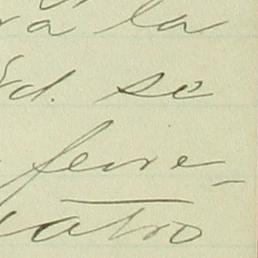 ra la
Ud. se
feve-
uatro